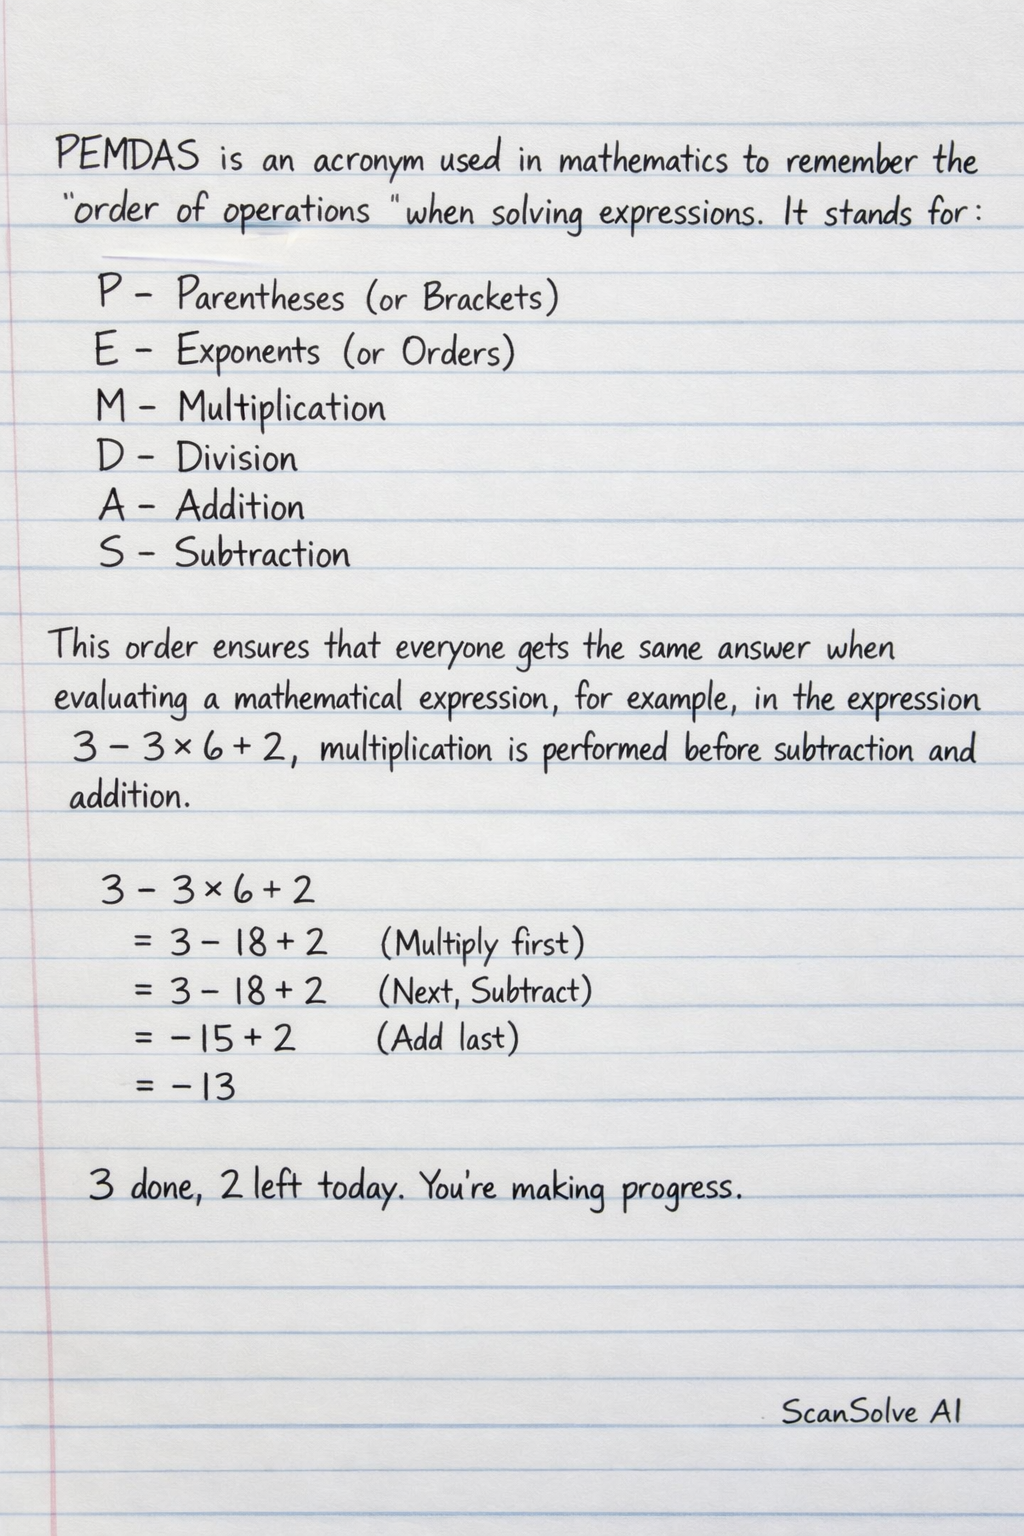 PEMDAS is an acronym used in mathematics to remember the
"order of operations "when solving expressions. It stands for:
P - Parentheses (or Brackets)
E - Exponents (or Orders)
M - Multiplication
D - Division
A - Addition
S - Subtraction
This order ensures that everyone gets the same answer when
evaluating a mathematical expression, for example, in the expression
3 - 3 × 6 + 2, multiplication is performed before subtraction and
addition.
3 - 3 × 6 + 2
= 3 - 18 + 2 (Multiply first)
= 3 - 18 + 2 (Next, Subtract)
= -15 + 2 (Add last)
= -13
3 done, 2 left today. You're making progress.
ScanSolve AI